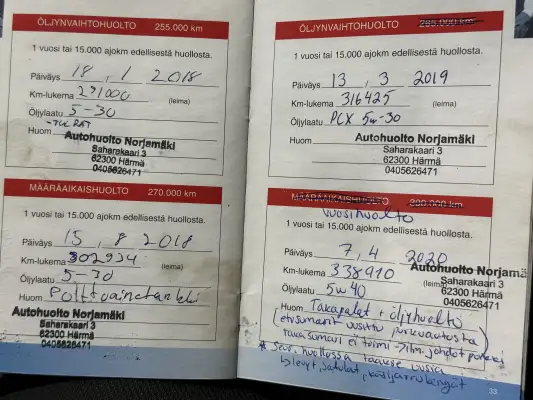 ÖLJYNVAIHTOHUOLTO 255.000 km
1 vuosi tai 15.000 ajokm edellisestä huollosta.
Päiväys 18, 1 2018
Km-lukema 291000 (leima)
Öljylaatu 5-30
Huom
Autohuolto Norjamäki
Saharakaari 3
62300 Härmä
0405626471
MÄÄRÄAIKAISHUOLTO 270.000 km
1 vuosi tai 15.000 ajokm edellisestä huollosta.
Päiväys 15, 8 2018
Km-lukema 302934 (leima)
Öljylaatu 5-30
Huom Polttoainetankki
Autohuolto Norjamäki
Saharakaari 3
62300 Härmä
0405626471
ÖLJYNVAIHTOHUOLTO 285.000 km
1 vuosi tai 15.000 ajokm edellisestä huollosta.
Päiväys 13, 3 2019
Km-lukema 316425 (leima)
Öljylaatu PCX 5w-30
Huom
Autohuolto Norjamäki
Saharakaari 3
62300 Härmä
0405626471
MÄÄRÄAIKAISHUOLTO 300.000 km
vuosihuolto
1 vuosi tai 15.000 ajokm edellisestä huollosta.
Päiväys 7, 4 2020
Km-lukema 338910 (leima)
Öljylaatu 5w40
Autohuolto Norjamä
Saharakaari 3
62300 Härmä
0405626471
Huom Takapalat + öljyhuolto
(etusumarit uusittu purkuautosta)
takasumari ei toimi → ilm. johdot poikki
* Seur. huollossa taakse uusia
levyt, satulat, käsijarrukengät
33